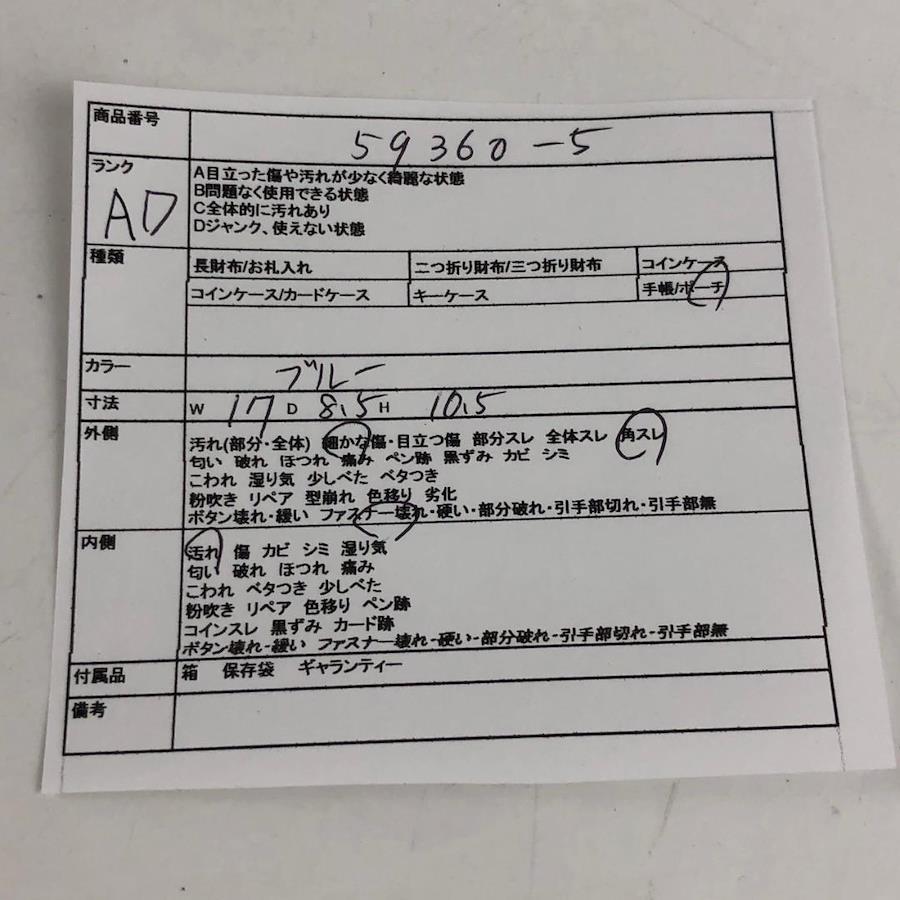 商品番号 59360-5
ランク AD
A目立った傷や汚れが少なく綺麗な状態
B問題なく使用できる状態
C全体的に汚れあり
Dジャンク、使えない状態
種類 長財布/お札入れ 二つ折り財布/三つ折り財布 コインケース
コインケース/カードケース キーケース 手帳/ポーチ
カラー ブルー
寸法 W 17 D 8.5 H 10.5
外側 汚れ(部分・全体) 細かな傷・目立つ傷 部分スレ 全体スレ 角スレ
匂い 破れ ほつれ 痛み ペン跡 黒ずみ カビ シミ
こわれ 湿り気 少しべた ベタつき
粉吹き リペア 型崩れ 色移り 劣化
ボタン壊れ・緩い ファスナー壊れ・硬い・部分破れ・引手部切れ・引手部無
内側 汚れ 傷 カビ シミ 湿り気
匂い 破れ ほつれ 痛み
こわれ ベタつき 少しべた
粉吹き リペア 色移り ペン跡
コインスレ 黒ずみ カード跡
ボタン壊れ-緩い ファスナー壊れ-硬い-部分破れ-引手部切れ-引手部無
付属品 箱 保存袋 ギャランティー
備考